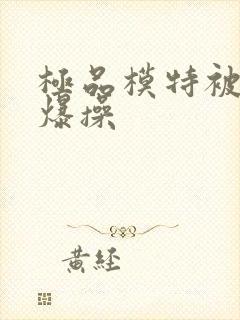 極品模特被
爆操
黃經